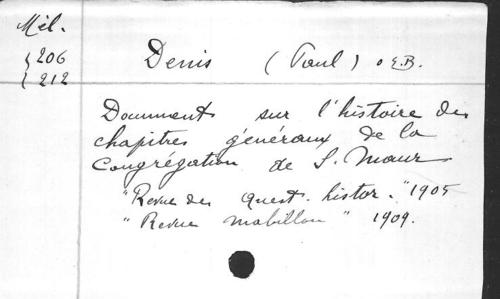 Mél.
206
212
Denis (Paul) O.E.B.
Documents sur l'histoire des
chapitres généraux de la
Congrégation de S. Maur
"Revue des quest. histor." 1905
"Revue Mabillon" 1909.